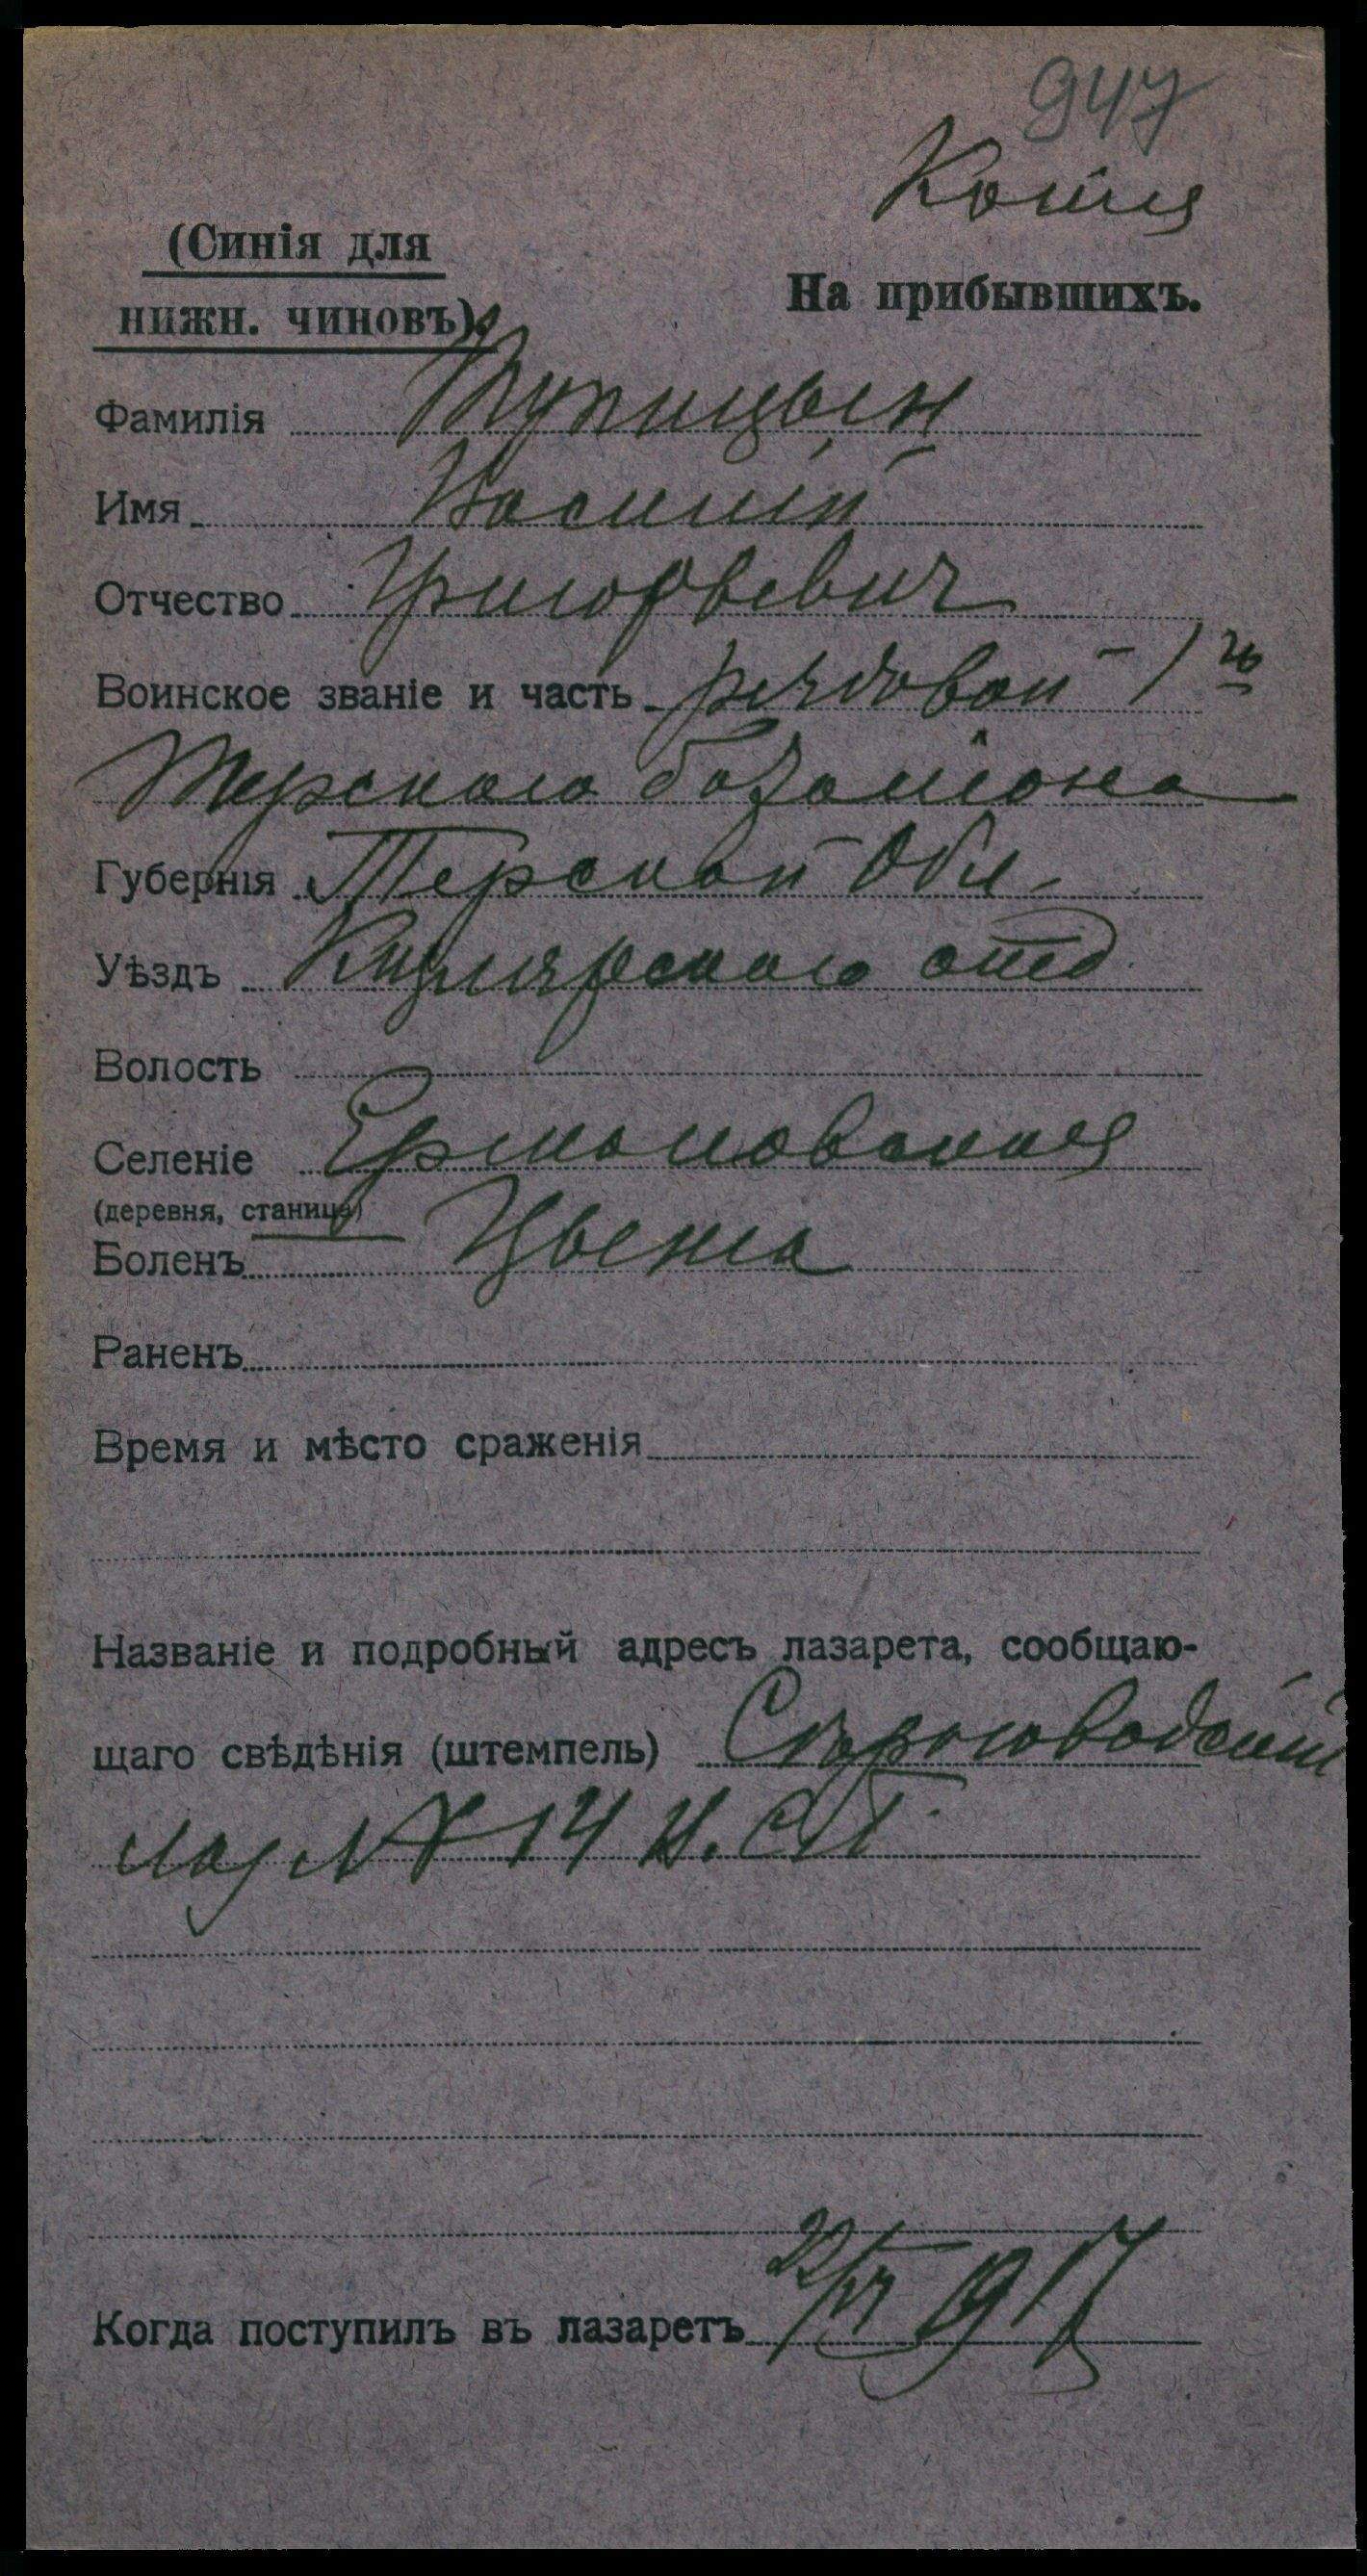 947
Копия
(Синія для
нижн. чиновъ).
На прибывшихъ.
Фамилія Купицын
Имя Василій
Отчество Григорьевич
Воинское званіе и часть рядовой 1го
Терского баталіона
Губернія Терской Обл.
Уѣздъ Кизлярского отд.
Волость
Селеніе Ермоловская
(деревня, станица)
Боленъ Цынга
Раненъ
Время и мѣсто сраженія
Названіе и подробный адресъ лазарета, сообщаю-
щаго свѣдѣнія (штемпель) Сѣрноводскій
лаз № 14
Когда поступилъ въ лазаретъ